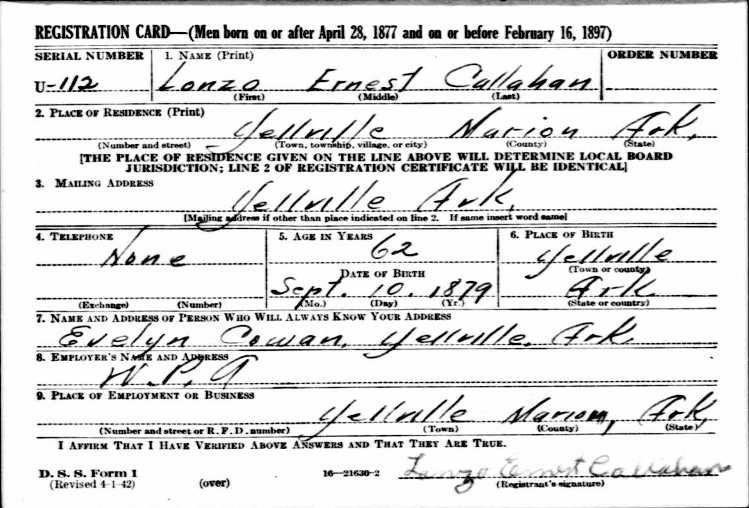 REGISTRATION CARD—(Men born on or after April 28, 1877 and on or before February 16, 1897)
SERIAL NUMBER 1. NAME (Print) ORDER NUMBER
U-112 Lonzo Ernest Callahan
(First) (Middle) (Last)
2. PLACE OF RESIDENCE (Print)
Yellville Marion Ark.
(Number and street) (Town, township, village, or city) (County) (State)
[THE PLACE OF RESIDENCE GIVEN ON THE LINE ABOVE WILL DETERMINE LOCAL BOARD
JURISDICTION; LINE 2 OF REGISTRATION CERTIFICATE WILL BE IDENTICAL]
3. MAILING ADDRESS
Yellville Ark.
[Mailing address if other than place indicated on line 2. If same insert word same]
4. TELEPHONE 5. AGE IN YEARS 6. PLACE OF BIRTH
None 62 Yellville
(Town or county)
DATE OF BIRTH
Sept. 10. 1879 Ark.
(Exchange) (Number) (Mo.) (Day) (Yr.) (State or country)
7. NAME AND ADDRESS OF PERSON WHO WILL ALWAYS KNOW YOUR ADDRESS
Evelyn Cowan, Yellville. Ark.
8. EMPLOYER'S NAME AND ADDRESS
W.P.A
9. PLACE OF EMPLOYMENT OR BUSINESS
Yellville Marion, Ark,
(Number and street or R. F. D. number) (Town) (County) (State)
I AFFIRM THAT I HAVE VERIFIED ABOVE ANSWERS AND THAT THEY ARE TRUE.
D. S. S. Form 1
(Revised 4-1-42) (over) 16—21630-2 Lonzo Ernest Callahan
(Registrant's signature)